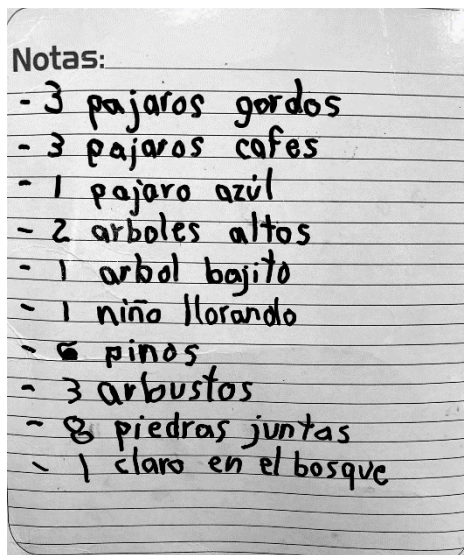 Notas:
- 3 pajaros gordos
- 3 pajaros cafes
- 1 pajaro azúl
- 2 arboles altos
- 1 arbol bajito
- 1 niño llorando
- 6 pinos
- 3 arbustos
- 8 piedras juntas
- 1 claro en el bosque